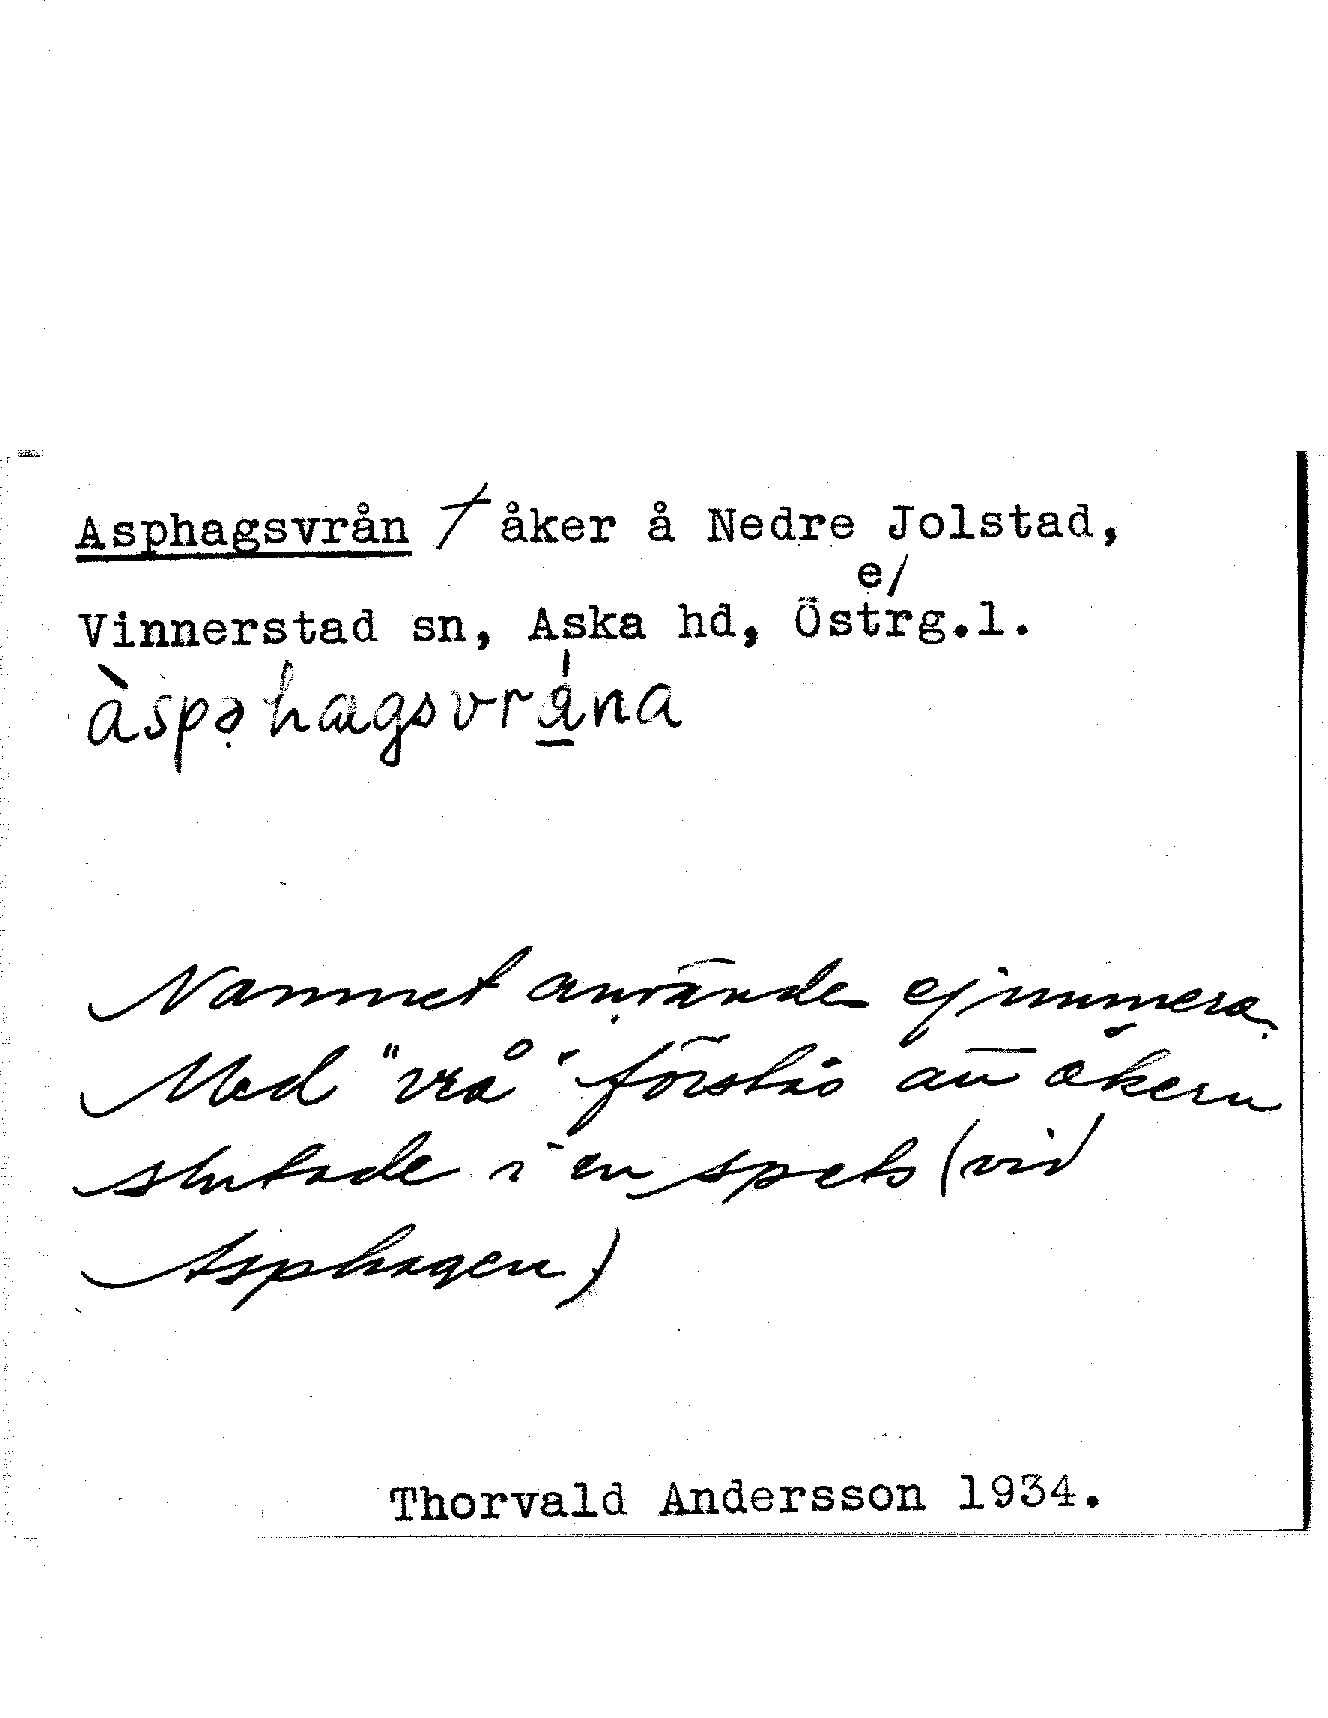 Asphagsvrån † åker å Nedre Jolstad,
e/
Vinnerstad sn, Aska hd, Östrg.l.
àspəhagsvrána
Namnet användes ej numera.
Med "vrå" förstås att åkern
slutade i en spets (vid
Asphagen)
Thorvald Andersson 1934.